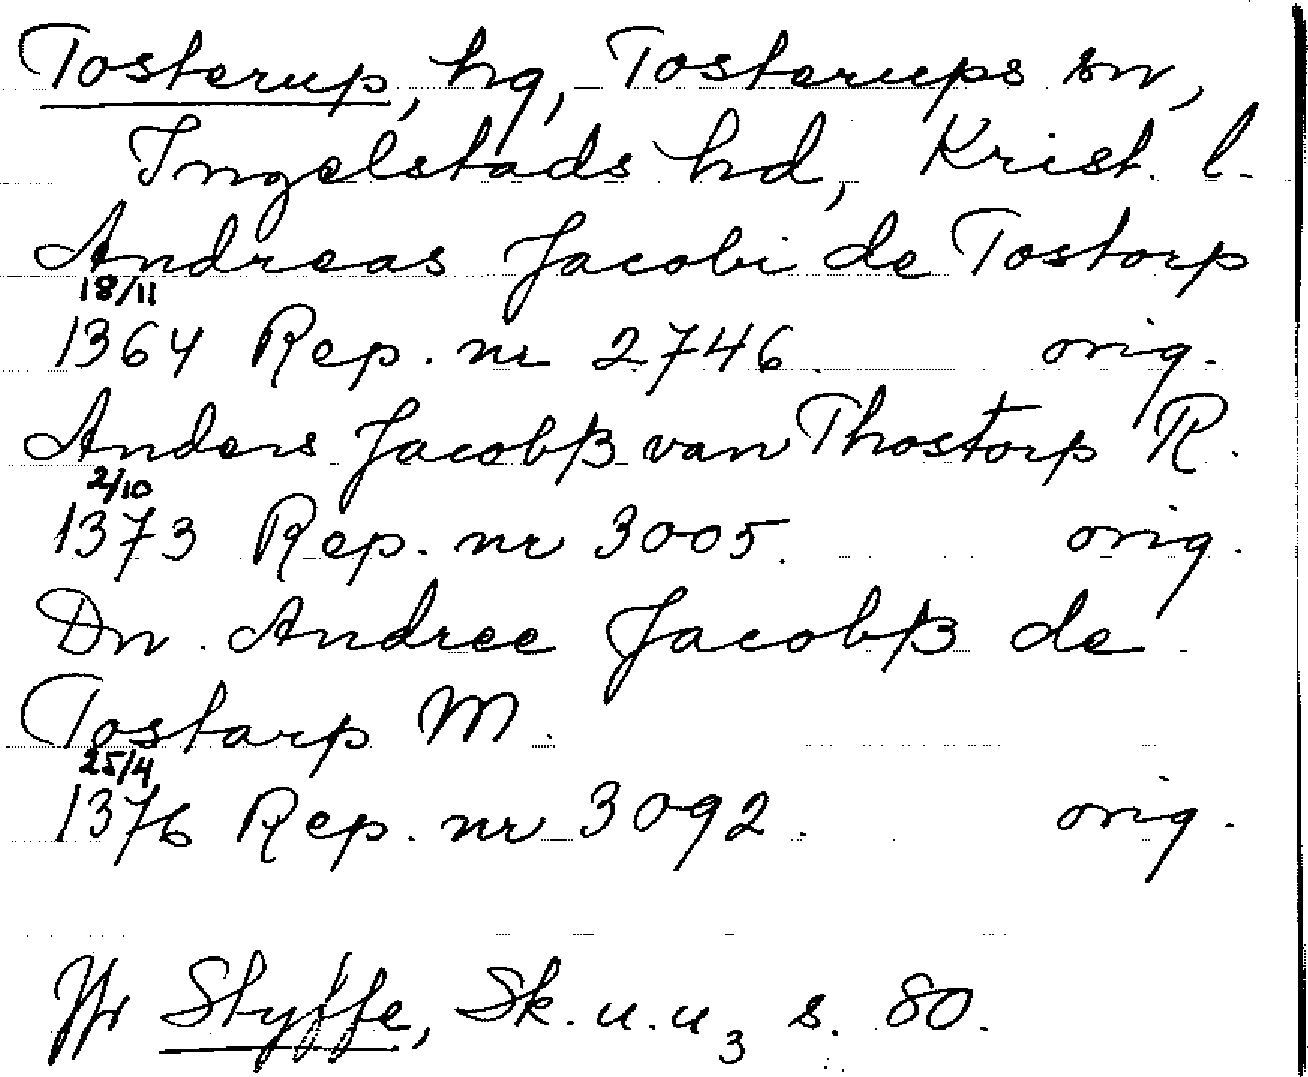 Tosterup, hg, Tosterups sn,
Ingelstads hd, Krist. l.
Andreas Jacobi de Tostorp
18/11
1364 Rep. nr 2746. orig.
Anders Jacobß van Thostorp R.
2/10
1373 Rep. nr 3005. orig.
Dn. Andree Jacobß de
Tostarp M.
25/4
1376 Rep. nr 3092. orig.
Jfr Styffe, Sk. u. u3 s. 80.